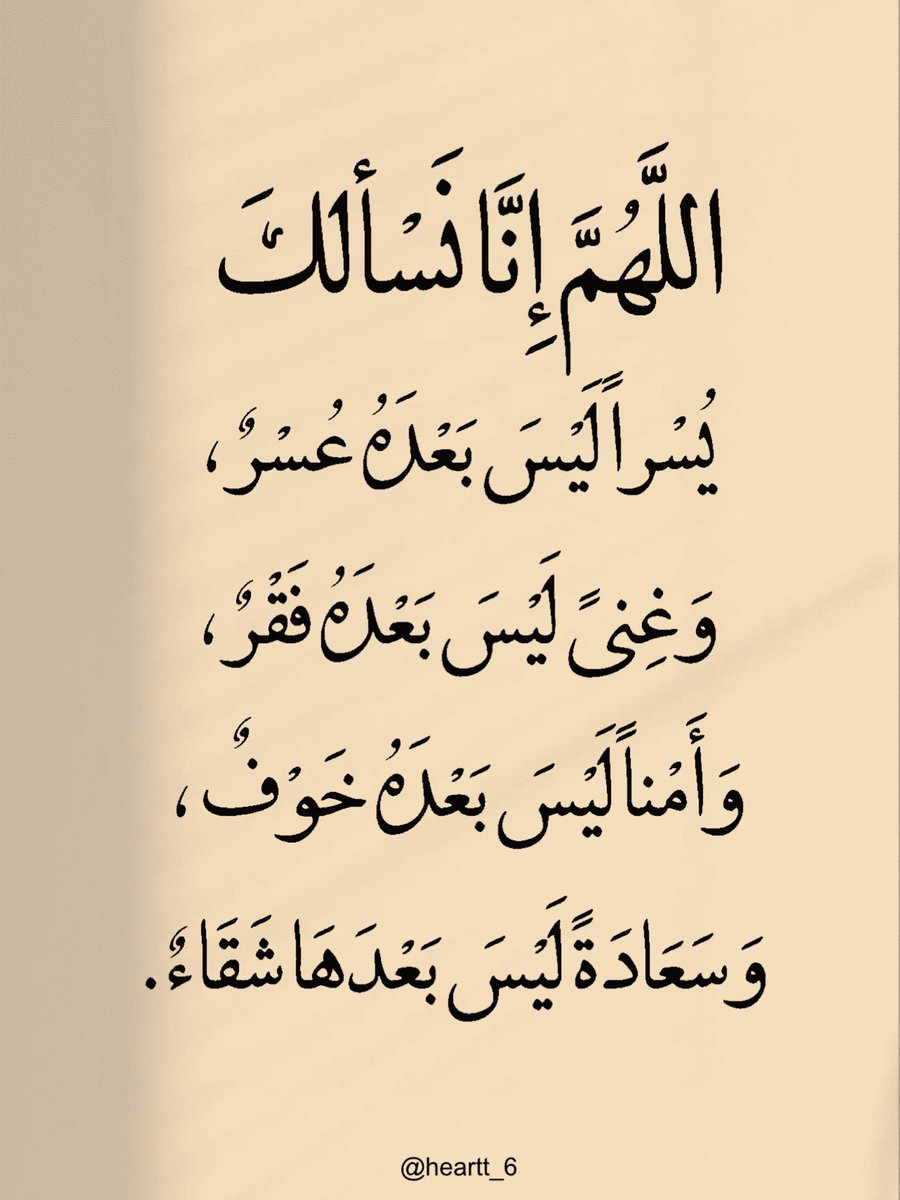 اللَّهُمَّ إِنَّا نَسْألُكَ
يُسْراً لَيْسَ بَعْدَهُ عُسْرٌ،
وَغِنىً لَيْسَ بَعْدَهُ فَقْرٌ،
وَأَمْناً لَيْسَ بَعْدَهُ خَوْفٌ،
وَسَعَادَةً لَيْسَ بَعْدَهَا شَقَاءٌ.
@heartt_6